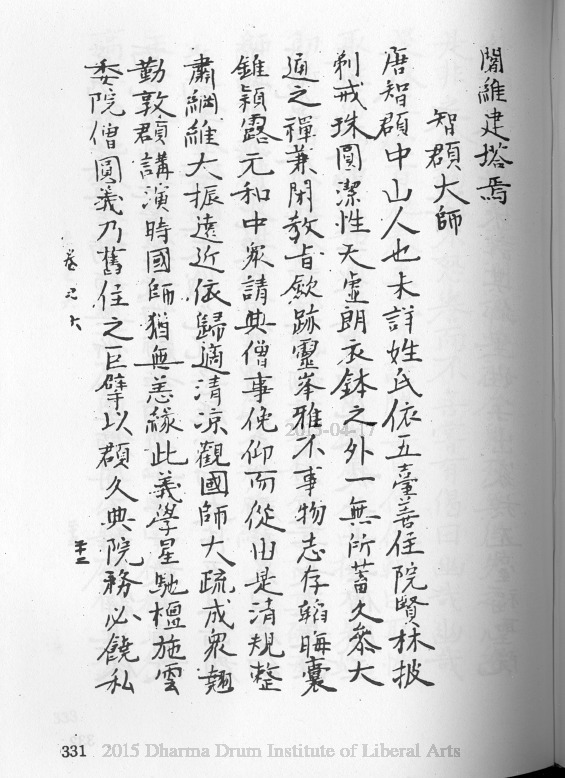 闍維建塔焉
智頵大師
唐智頵中山人也未詳姓氏依五臺善住院賢林披
剃戒珠圓潔性天虛朗衣鉢之外一無所蓄久叅大
通之禪兼閑教旨歛跡靈峯雅不事物志存韜晦囊
錐穎露元和中衆請典僧事俛仰而從由是清規整
肅綱維大振遠近依歸適清凉觀國師大疏成衆翹
勤敦頵講演時國師猶無恙緣此義學星馳檀施雲
委院僧圓義乃舊住之巨擘以頵久典院務必饒私
卷
2015-04-17
331 2015 Dharma Drum Institute of Liberal Arts